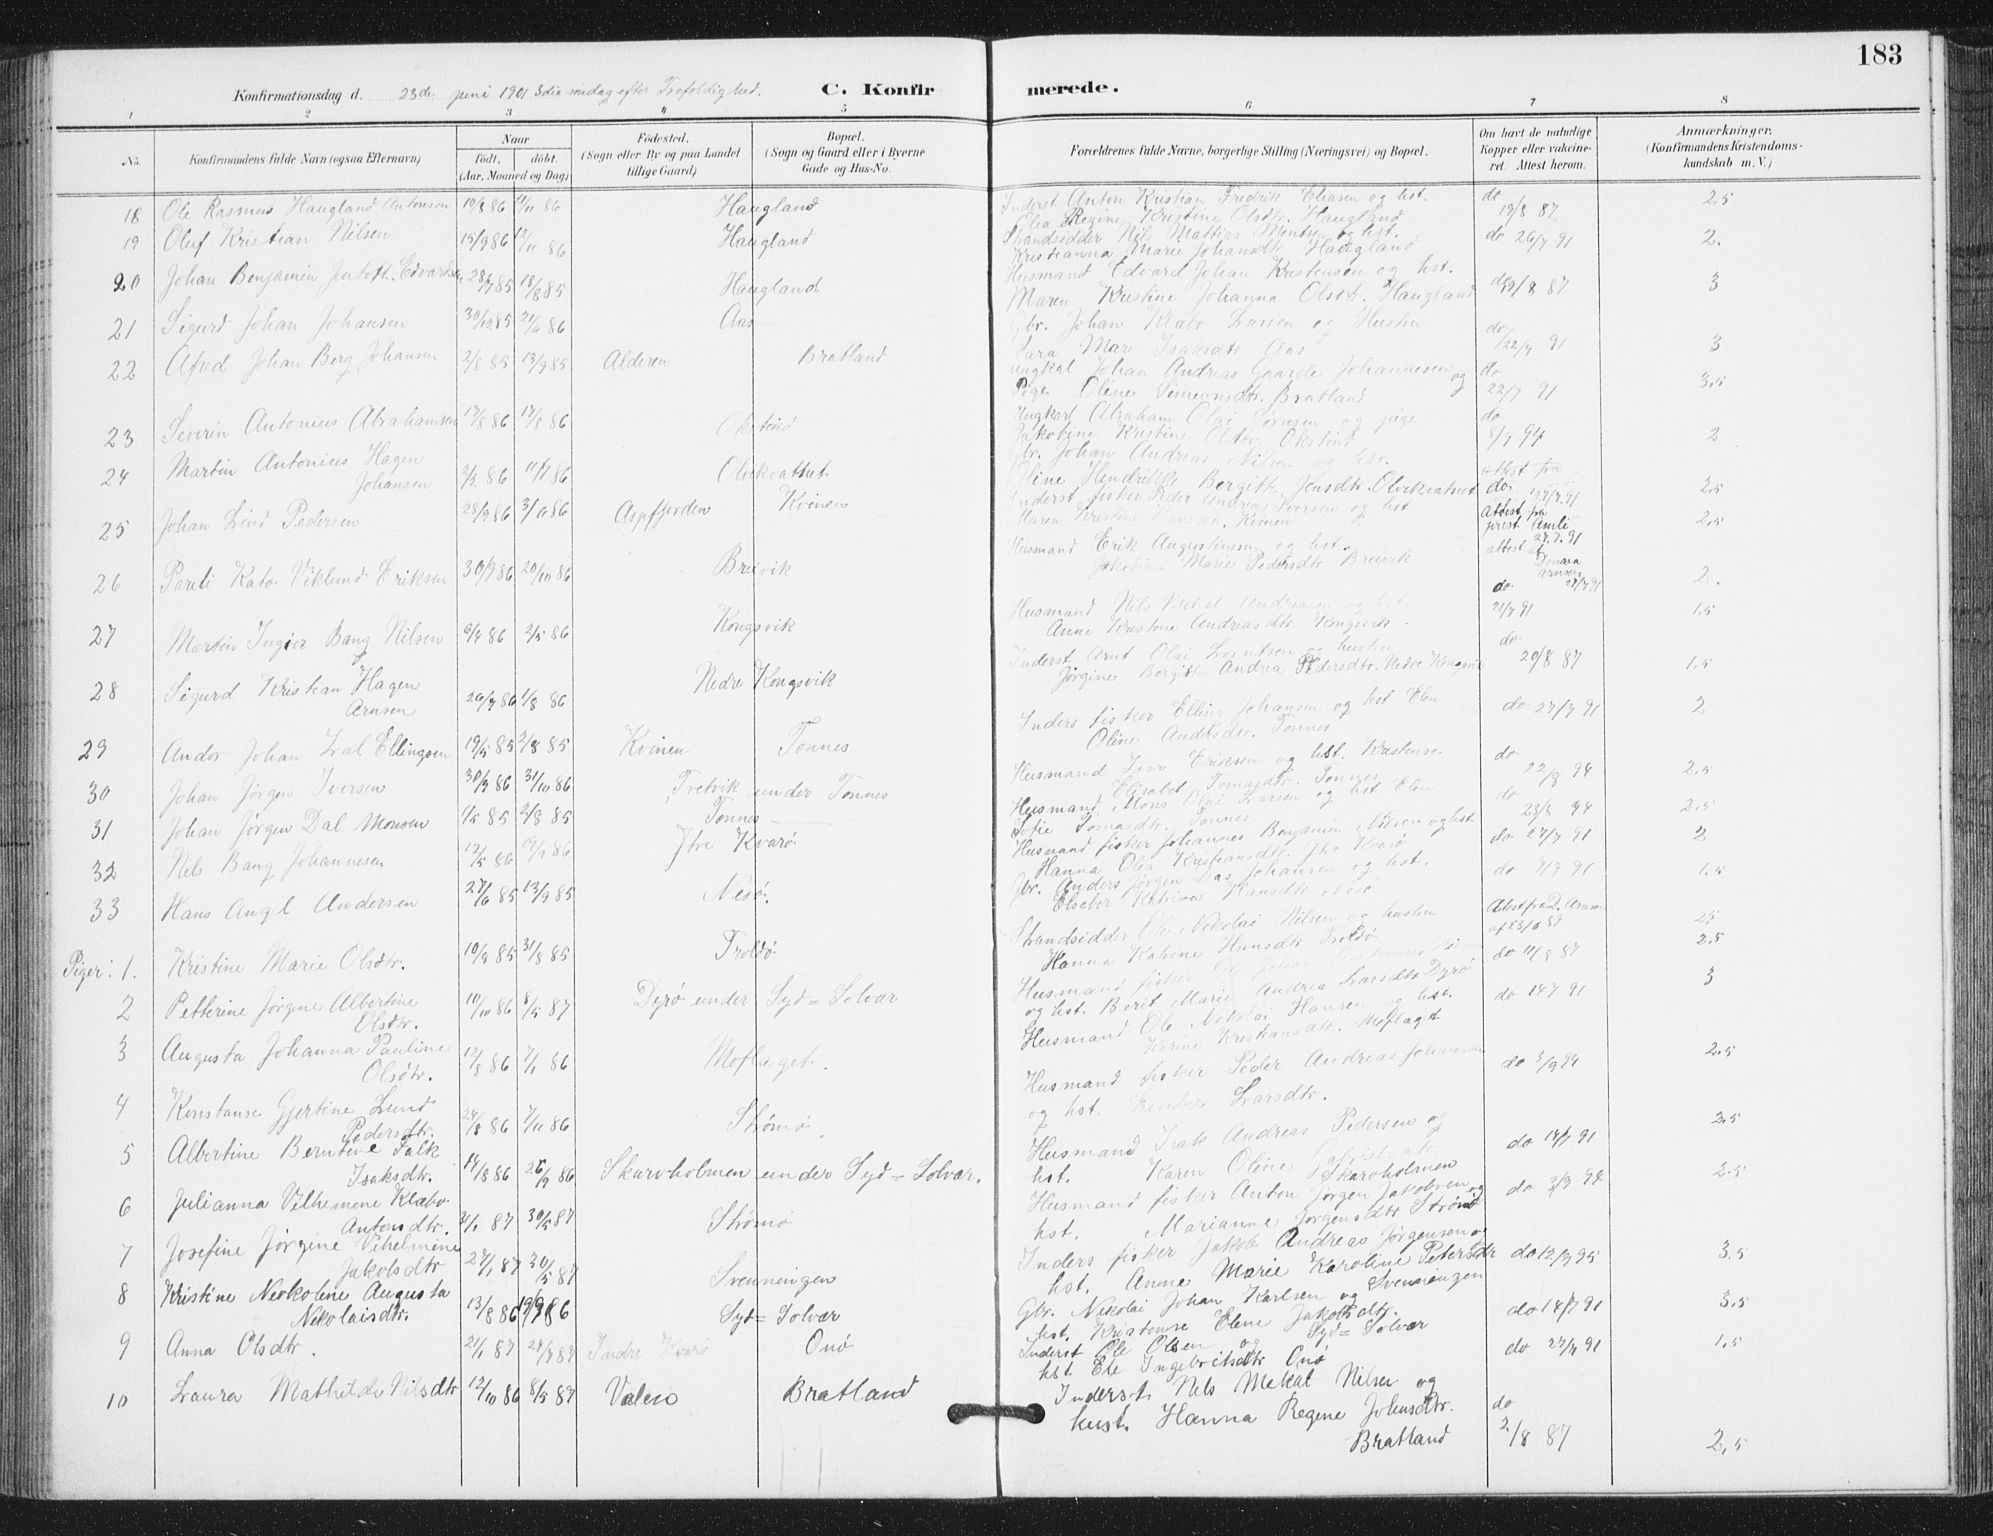 183
Konfirmationsdag d. 23de juni 1901 3die søndag efter Trefoldighed. C. Konfirmerede.
1 2 3 4 5 6 7 8
No. Konfirmandens fulde Navn (ogsaa Efternavn) Naar født. døbt. (Aar, Maaned og Dag) Fødested. (Sogn eller By og paa Landet tillige Gaard) Bopæl. (Sogn og Gaard eller i Byerne Gade og Hus-No. Forældrenes fulde Navne, borgerlige Stilling (Næringsvei) og Bopæl. Om havt de naturlige Kopper eller vakcineret. Attest herom. Anmærkninger. (Konfirmandens Kristendomskundskab m. V.)
18 Ole Rasmus Haugland Antonsen Haugland Inderst Anton Kristian Fredrik Eliasen og hst. do 19/8 87 2.5
Olea Regine Kristine Olsdtr. Haugland
19 Oluf Kristian Nilsen 15/9 86 Haugland Strandsidder Nils Mattias Montsen og hst. do 26/7 91 2.
Kristianna Marie Johansdtr Haugland
20 Johan Benjamin Jentoft Edvardsen 18/8 85 Haugland Husmand Edvard Johan Kristensen og hst. do 19/8 87 3
Maren Kristine Johanna Olsdtr. Haugland
21 Sigurd Johan Johansen 30/12 85 Aas Gbr. Johan Klabo Larsen og Hustru do 22/7 91 3
Sara Marie Isaksdtr Aas
22 Alfred Johan Berg Johansen 2/8 85 13/9 85 Alderen Bratland ungkal Johan Andreas Gaarde Johannesen og do 22/7 91 3.5
Pige Oline Simeonsdtr. Bratland
23 Severin Antonius Abrahamsen Okstind Ungkarl Abraham Olai Jørnsen og pige do 2
Jakobine Kristine Olsdtr. Okstind
24 Martin Antonius Hagen Johansen 11/7 86 Olvikvattnet Gbr. Johan Andreas Nilsen og hst. 2.5
Oline Hendrikke Bergitte Jensdtr. Olvikvatnet
25 Johan Lind Pedersen Aspfjorden Kvinen Inderst fisker Peder Andreas Iversen og hst Attest fra prest Amli 27.7.91 2,5
Maren Kristine Hansdtr. Kvinen
26 Pareli Kato Viklund Eriksen 30/7 86 20/10 86 Breivik Husmand Erik Augustinusen og hst. 2.
Jakobine Marie Pedersdtr Breivik do 27/7 91
27 Martin Ingier Bang Nilsen 2/5 86 Kongsvik Husmand Nils Mekal Andreasen og hst 21/7 91 1.5
Anne Kristine Andreasdtr Kongsvik.
28 Sigurd Kristian Hagen Arnsen 1/8 86 Nedre Kongsvik Inderst Arnt Olai Lorntsen og hustru do 20/8 87 1.5
Jørgine Bergitte Andrea Pedersdtr. Nedre Kongsvik
29 Andor Johan Dal Ellingsen 19/5 85 2/8 85 Kvinen Tonnes Inders fisker Elling Johansen og hst Elen do 27/7 91 2
Oline Andersdtr. Tonnes
30 Johan Jørgen Iversen 31/10 86 Tretvik under Tonnes Husmand Iver Eriksen og hst. Kristense do 2.5
Elisabet Tomasdtr. Tonnes
31 Johan Jørgen Dal Monsen 2/8 85 Tonnes Husmand Mons Olai Larsen og hst Elen do 23/8 94 2.5
Sofie Tomasdtr. Tonnes
32 Nils Bang Johannesen 12/5 86 Ytre Kvarø Husmand fisker Johannes Benjamin Nilsen og hst. do 27/7 91 2
Hanna Olea Kristiansdtr. Ytre Kvarø
33 Hans Angel Andersen 27/6 85 13/9 85 Nesø. Gbr. Anders Jørgen Das Johansen og hst. do 7/7 91 1.5
Elseber Katrina Hansdtr Nesø
Piger: 1. Kristine Marie Olsdtr. 10/8 85 31/8 85 Troldø Strandsidder Ole Nikolai Nilsen og hustru 2.5
Hanna Katrine Hansdtr Troldø
2 Petterine Jørgine Albertine Olsdtr. 10/10 86 8/5 87 Dyrø under Syd=Solvær Husmand fisker do 11/8 87 2.5
og hst. Berit Marie Andrea Larsdtr Dyrø
3 Augusta Johanna Pauline Olsdtr. 12/8 86 Moflaget. Husmand Ole Nikolai Hansen og hst. do 14/7 91 3
Karine Kristiansdtr. Moflaget
4 Konstanse Gjertine Lund Pedersdtr. 24/8 86 7/11 86 Strømø. Husmand fisker Peder Andreas Johansen do 3/9 94 2.5
og hst. Larsdtr.
5 Albertine Berntine Falk Isaksdtr. 14/8 86 26/9 86 Skarvholmen under Syd=Solvær. Husmand Isak Andreas Pedersen og do 14/7 91 2.5
hst. Karen Oline Skarvholmen
6 Julianna Vilhemine Klabo Antonsdtr. 30/5 87 Strømø Husmand fisker Anton Jørgen Jakobsen og do 3/9 94 2.5
hst. Marianne Jørgensdtr Strømø
7 Josefine Jørgine Vilhelmine Jakobsdtr 27/1 87 30/5 87 Svenningen Inders fisker Jakob Andreas Jørgensen og do 12/9 95 3.5
hst. Anne Marie Karoline Petersdtr Svenningen
8 Kristine Nekoline Augusta Nikolaisdtr. 13/8 86 19/9 86 Syd=Solvær Gbr. Nikolai Johan Karlsen og do 14/7 91 3.5
hst. Kristense Elene Jakobsdtr. Syd=Solvær
9 Anna Olsdtr. 21/1 87 Indre Kvarø Onø Inderst Ole Olsen og do 27/7 91 1.5
hst Ele Ingebritsdtr Onø
10 Laura Mathilde Nilsdtr 12/10 86 8/5 87 Valen Bratland Inderst Nils Mekal Nilsen og do 2/8 87 2,5
hust. Hanna Regine Johnsdtr.
Bratland